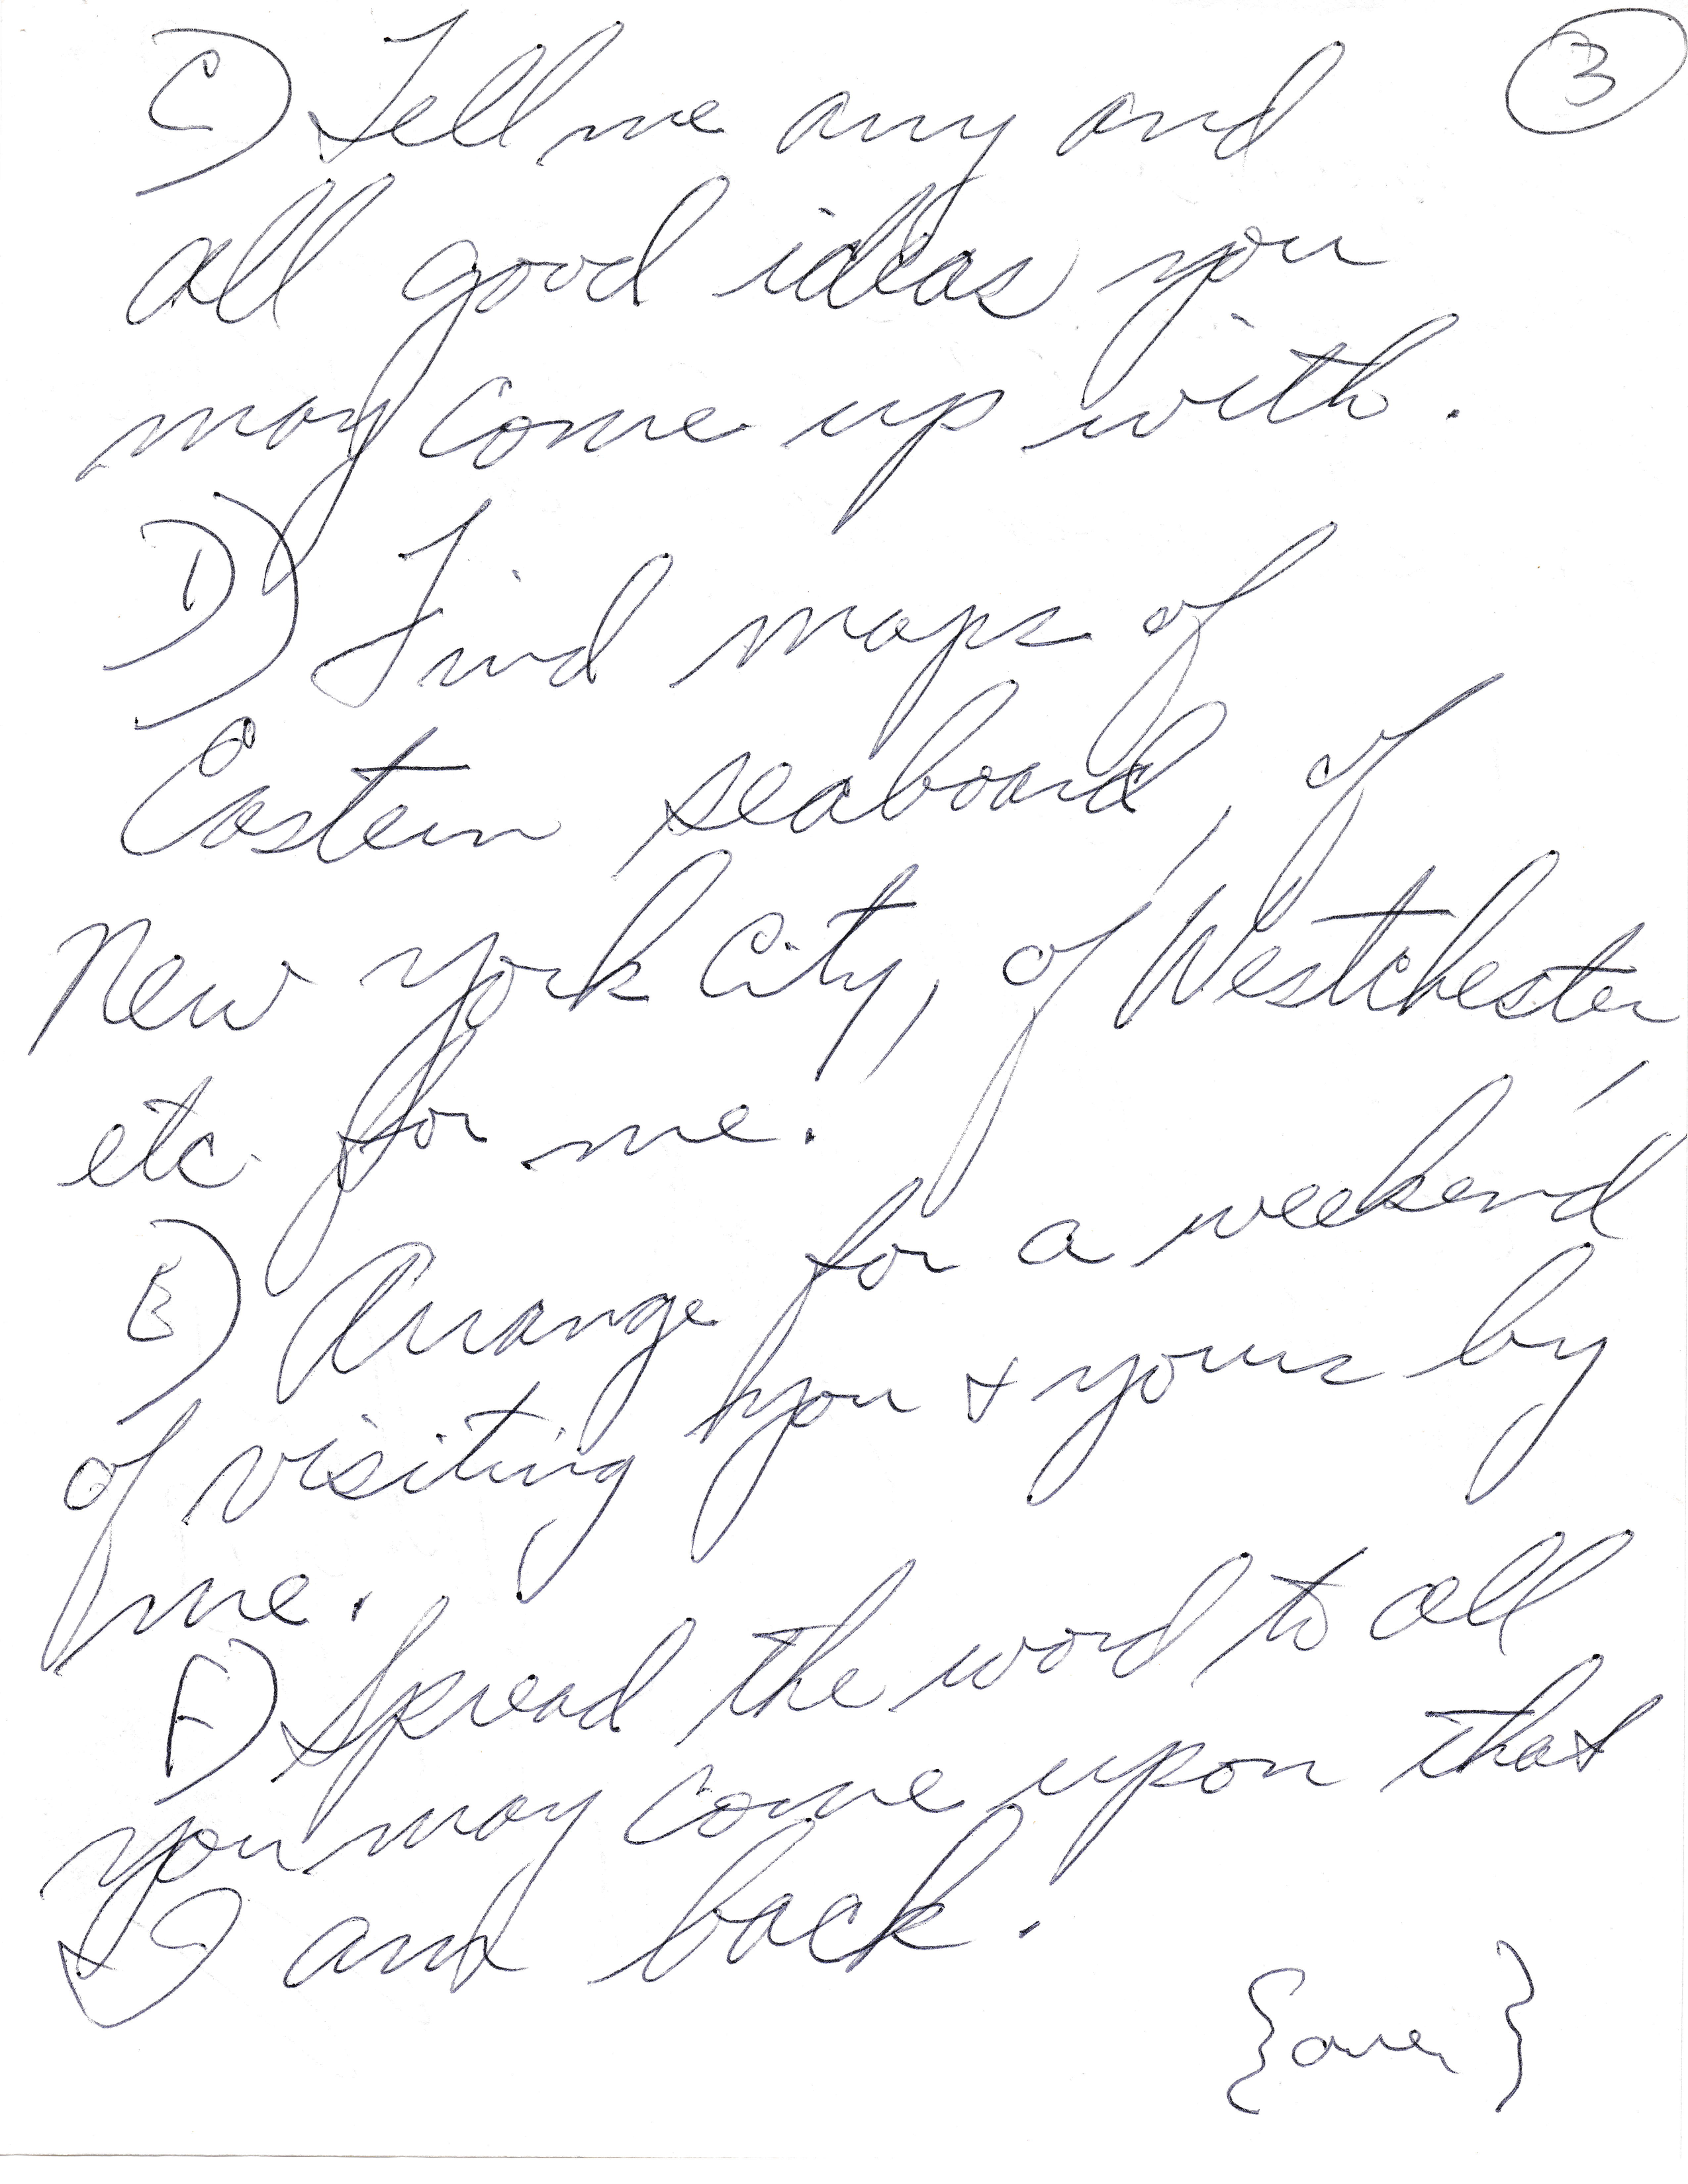 3
C) Tell me any and
all good ideas you
may come up with.
D) Find maps of
Eastern seaboard, of
New York City, of Westchester,
etc. for me.
E) Arrange for a weekend
of visiting you & yours by
me.
F) Spread the word to all
you may come upon that
I am back.
{over}